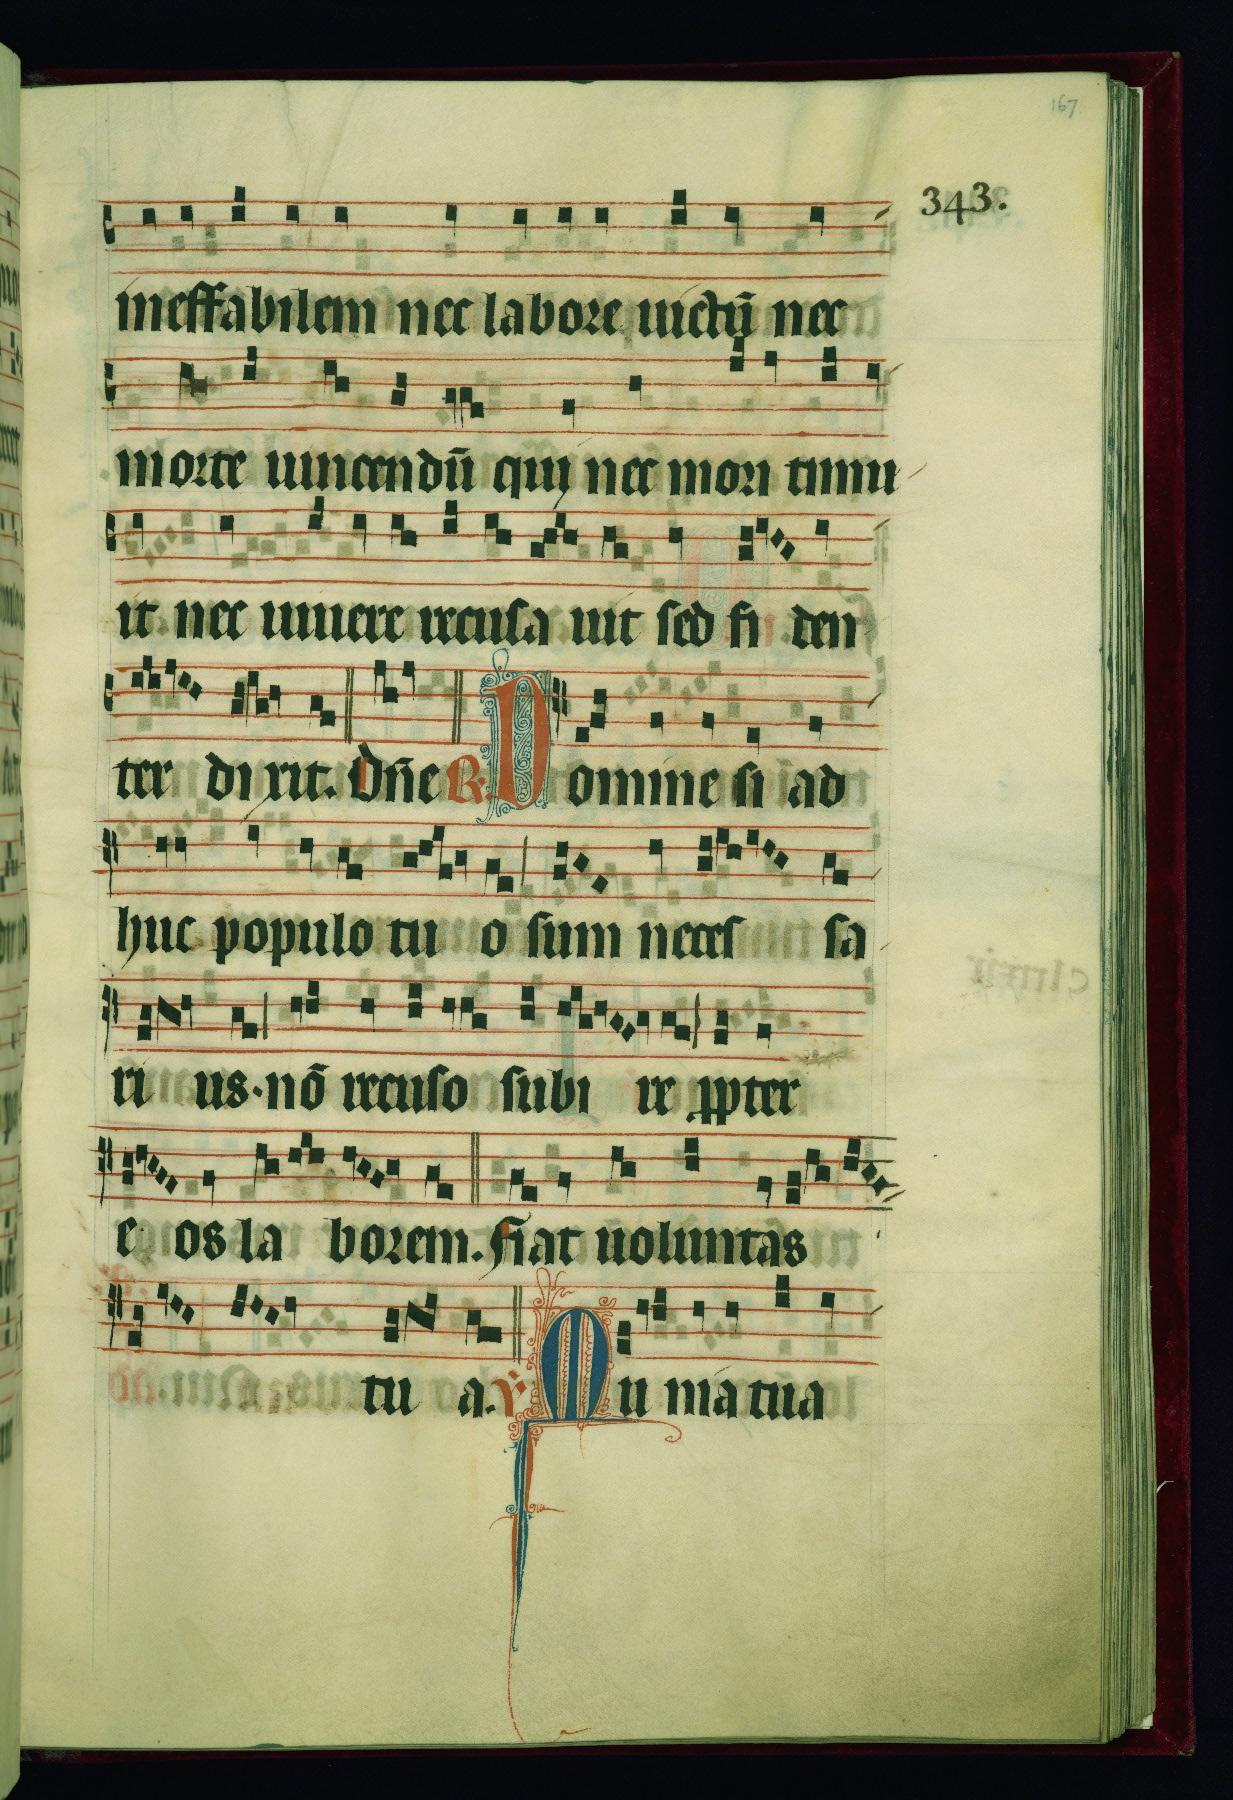 167
343.
ineffabilem nec labore uictū nec
morte uincendū qui nec mori timu
it nec uiuere recusa uit sed fi den
ter di xit. Dn̄e R. Domine si ad
huc populo tu o sum neces sa
ri us. nō recuso subi re ꝓpter
e os la borem. Fiat uoluntas
tu a. V. Mu nia tua